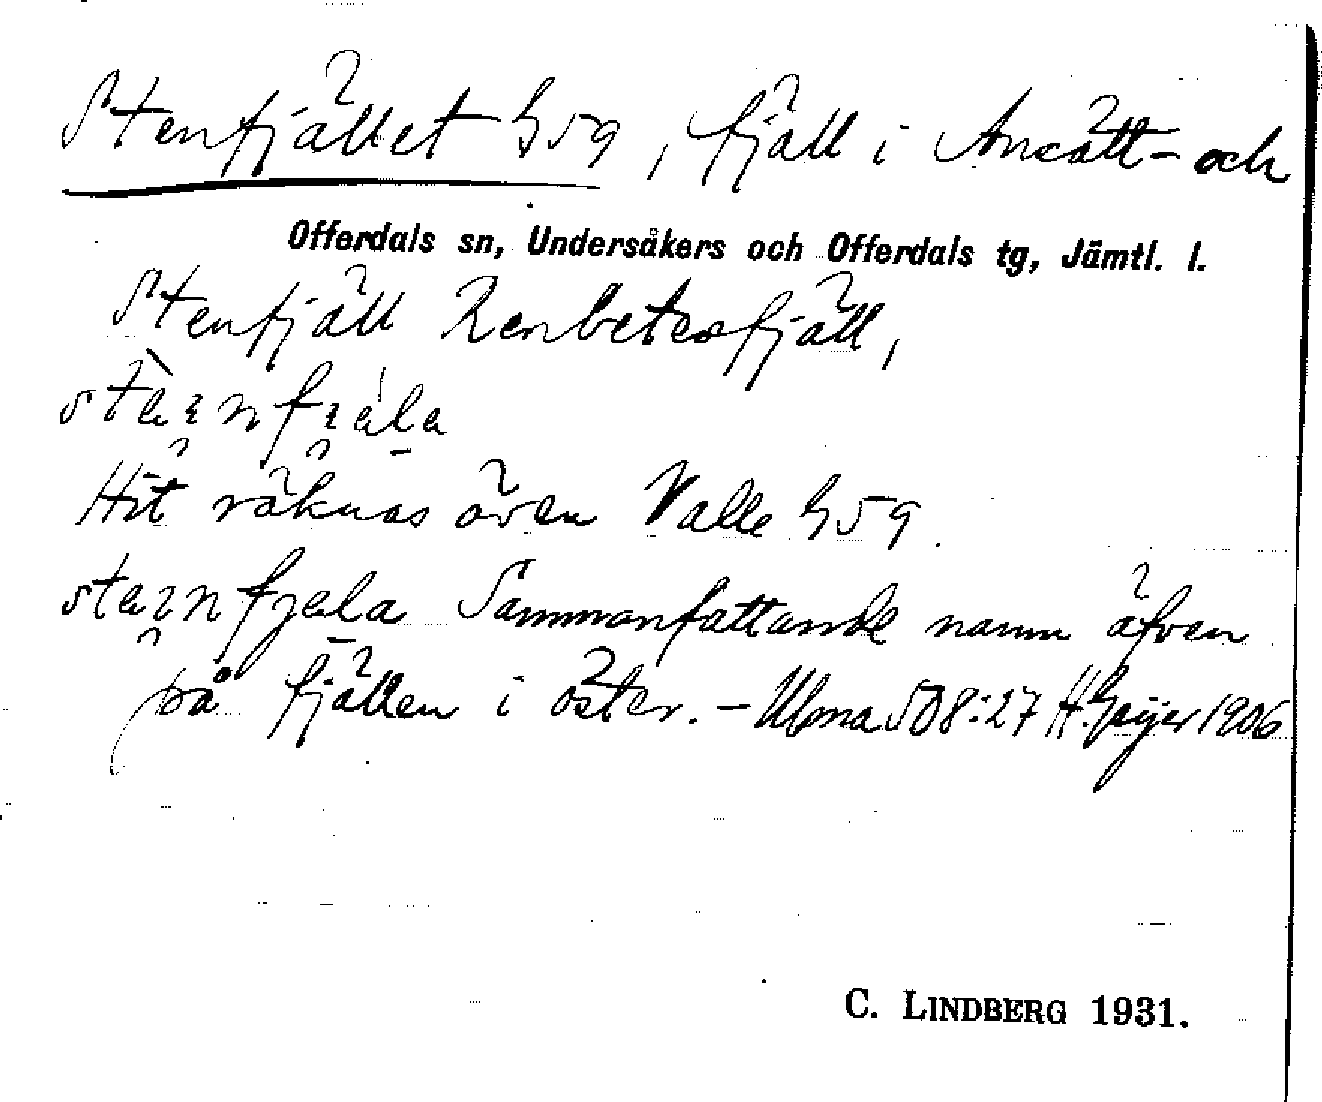 Stenfjället h59, fjäll i Ansätt- och
Offerdals sn, Undersåkers och Offerdals tg, Jämtl. l.
Stenfjäll Renbetesfjäll,
Hit räknas även Valle h59.
Sammanfattande namn äfven
på fjällen i öster. – Ulma 508:27 H. Geijer 1906
C. LINDBERG 1931.